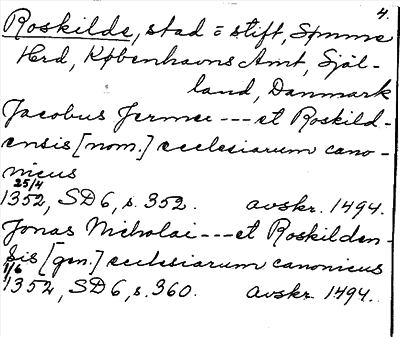 4.
Roskilde, stad = stift, Sømme
Hrd, Københavns Amt, Själ-
land, Danmark
Jacobus Jermer --- et Roskild-
ensis [nom.] ecclesiarum cano-
nicus
25/4
1352, SD 6, s. 352. avskr. 1494.
Jonas Nicholai --- et Roskilden-
sis [gen.] ecclesiarum canonicus
1/6
1352, SD 6, s. 360. avskr. 1494.